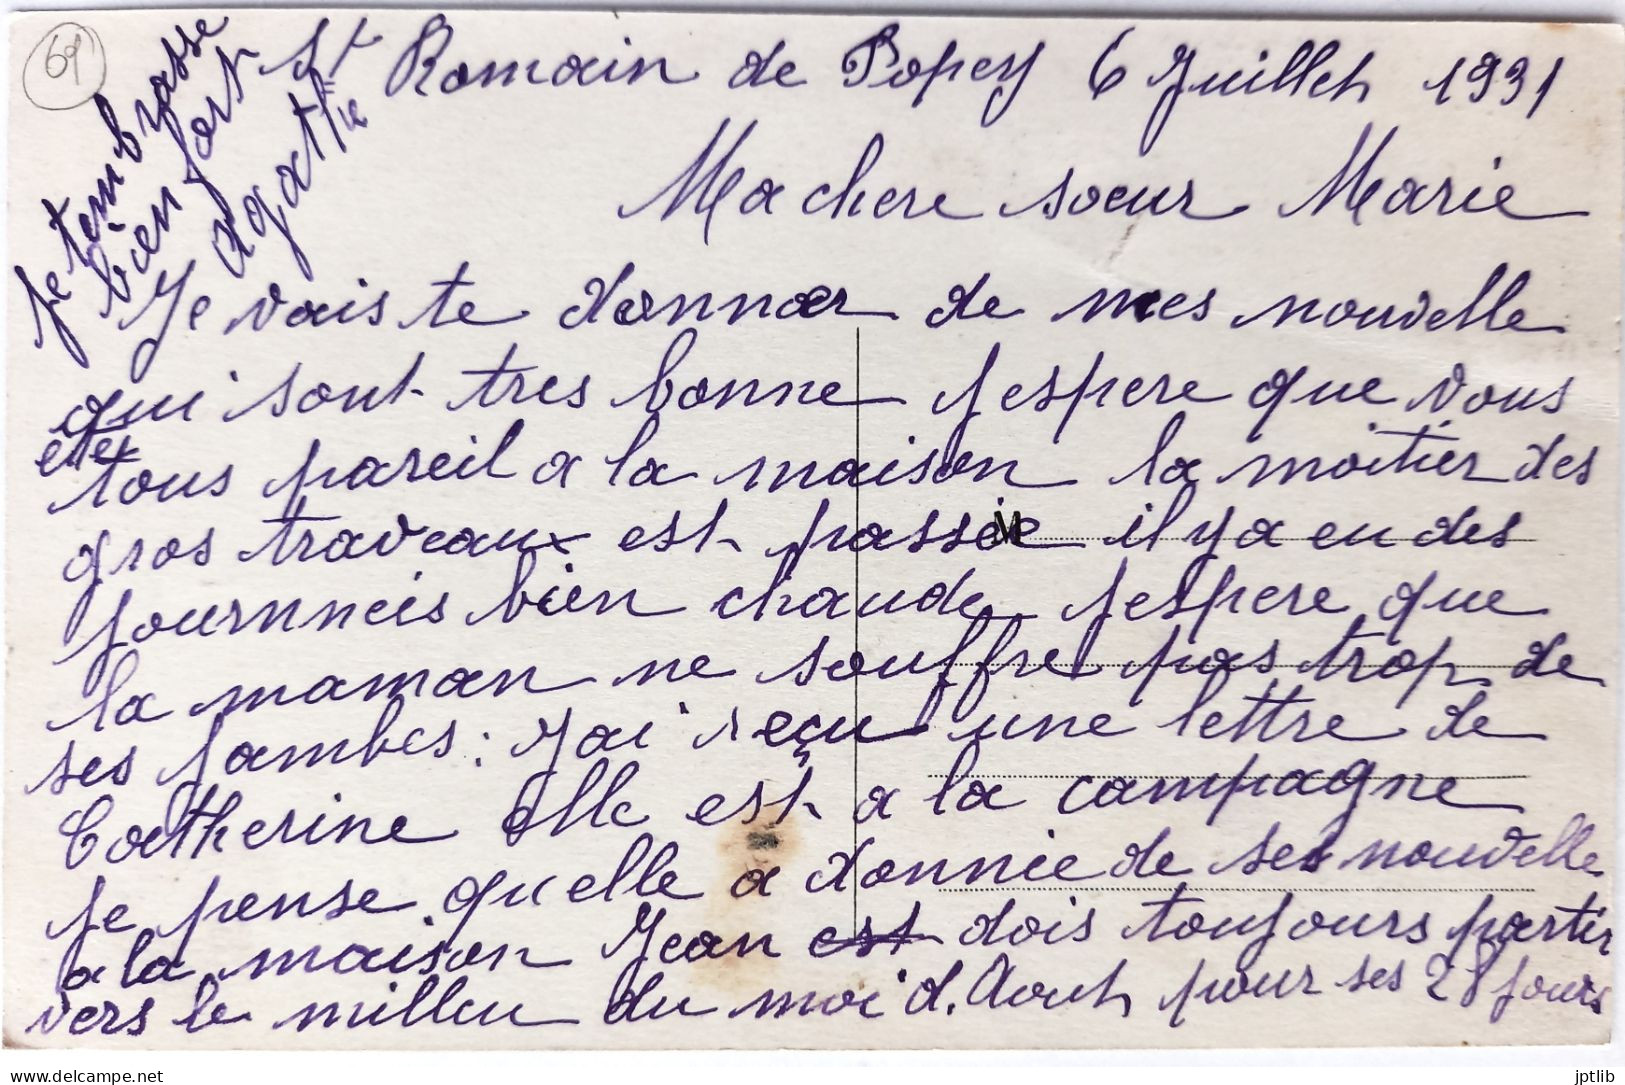 69
St Romain de Popey 6 Juillet 1931
Ma chere soeur Marie
Je vais te donner de mes nouvelle
qui sont tres bonne j espere que vous
etes
tous pareil a la maison la moitier des
gros traveaux est passée il y a eu des
journneis bien chaude j espere que
la maman ne souffre pas trop de
ses jambes : J ai reçu une lettre de
Catherine elle est a la campagne
je pense qu elle a donnée de ses nouvelle
a la maison Jean est dois toujours partir
vers le milleu du moi d. Aout pour ses 28 jours
Je tembrasse
bien fort
agathe
delcampe.net
jptlib